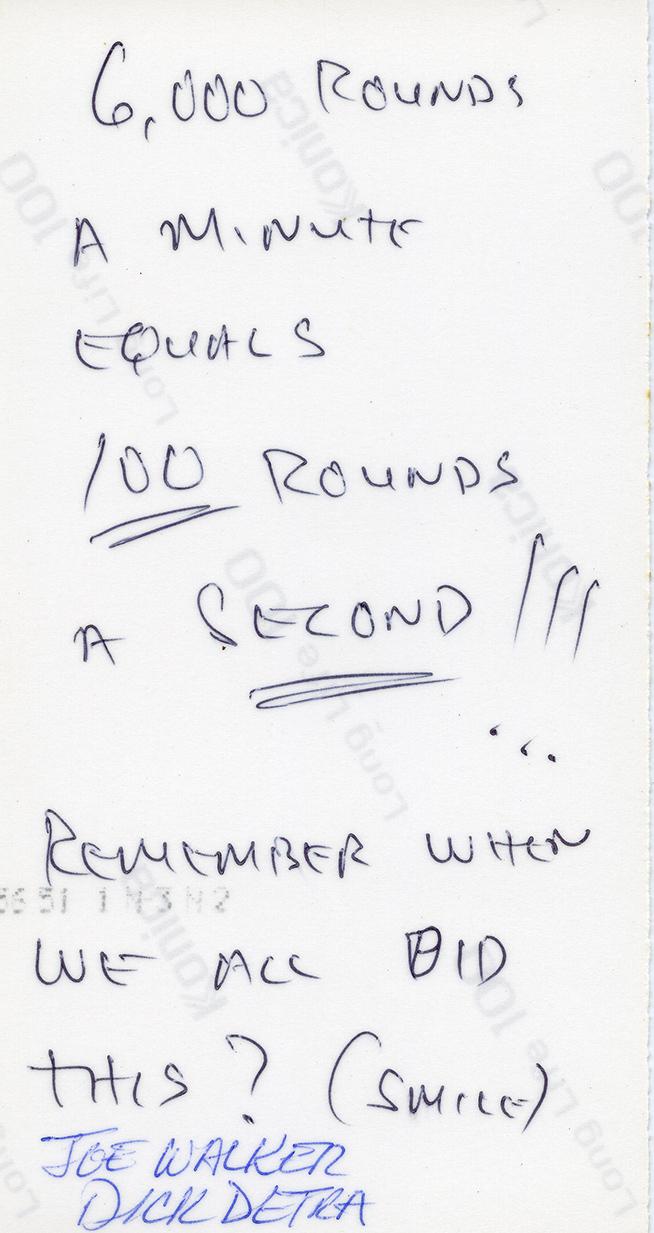 6,000 ROUNDS
A MINUTE
EQUALS
100 ROUNDS
A SECOND!!!
REMEMBER WHEN
WE ALL DID
THIS? (SMILE)
JOE WALKER
DICK DETRA
Konica
Long Life 100